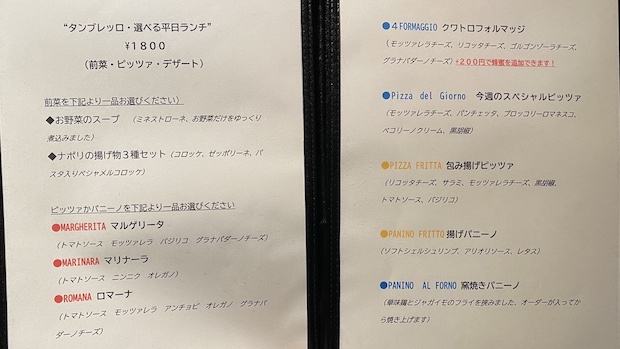 “タンブレッロ・選べる平日ランチ”
¥1800
（前菜・ピッツァ・デザート）
前菜を下記より一品お選びください）
◆お野菜のスープ （ミネストローネ、お野菜だけをゆっくり
煮込みました）
◆ナポリの揚げ物３種セット（コロッケ、ゼッポリーネ、パ
スタ入りベシャメルコロッケ）
ピッツァかパニーノを下記より一品お選びください
●MARGHERITA マルゲリータ
（トマトソース モッツァレラ バジリコ グラナパダーノチーズ）
●MARINARA マリナーラ
（トマトソース ニンニク オレガノ）
●ROMANA ロマーナ
（トマトソース モッツァレラ アンチョビ オレガノ グラナパ
ダーノチーズ）
●４FORMAGGIO クワトロフォルマッジ
（モッツァレラチーズ、リコッタチーズ、ゴルゴンゾーラチーズ、
グラナパダーノチーズ）+２００円で蜂蜜を追加できます！
●Pizza del Giorno 今週のスペシャルピッツァ
（モッツァレラチーズ、パンチェッタ、ブロッコリーロマネスコ、
ペコリーノクリーム、黒胡椒）
●PIZZA FRITTA 包み揚げピッツァ
（リコッタチーズ、サラミ、モッツァレラチーズ、黒胡椒、
トマトソース、バジリコ）
●PANINO FRITTO 揚げパニーノ
（ソフトシェルシュリンプ、アリオリソース、レタス）
●PANINO AL FORNO 窯焼きパニーノ
（華味鶏とジャガイモのフライを挟みました、オーダーが入ってか
ら焼き上げます）